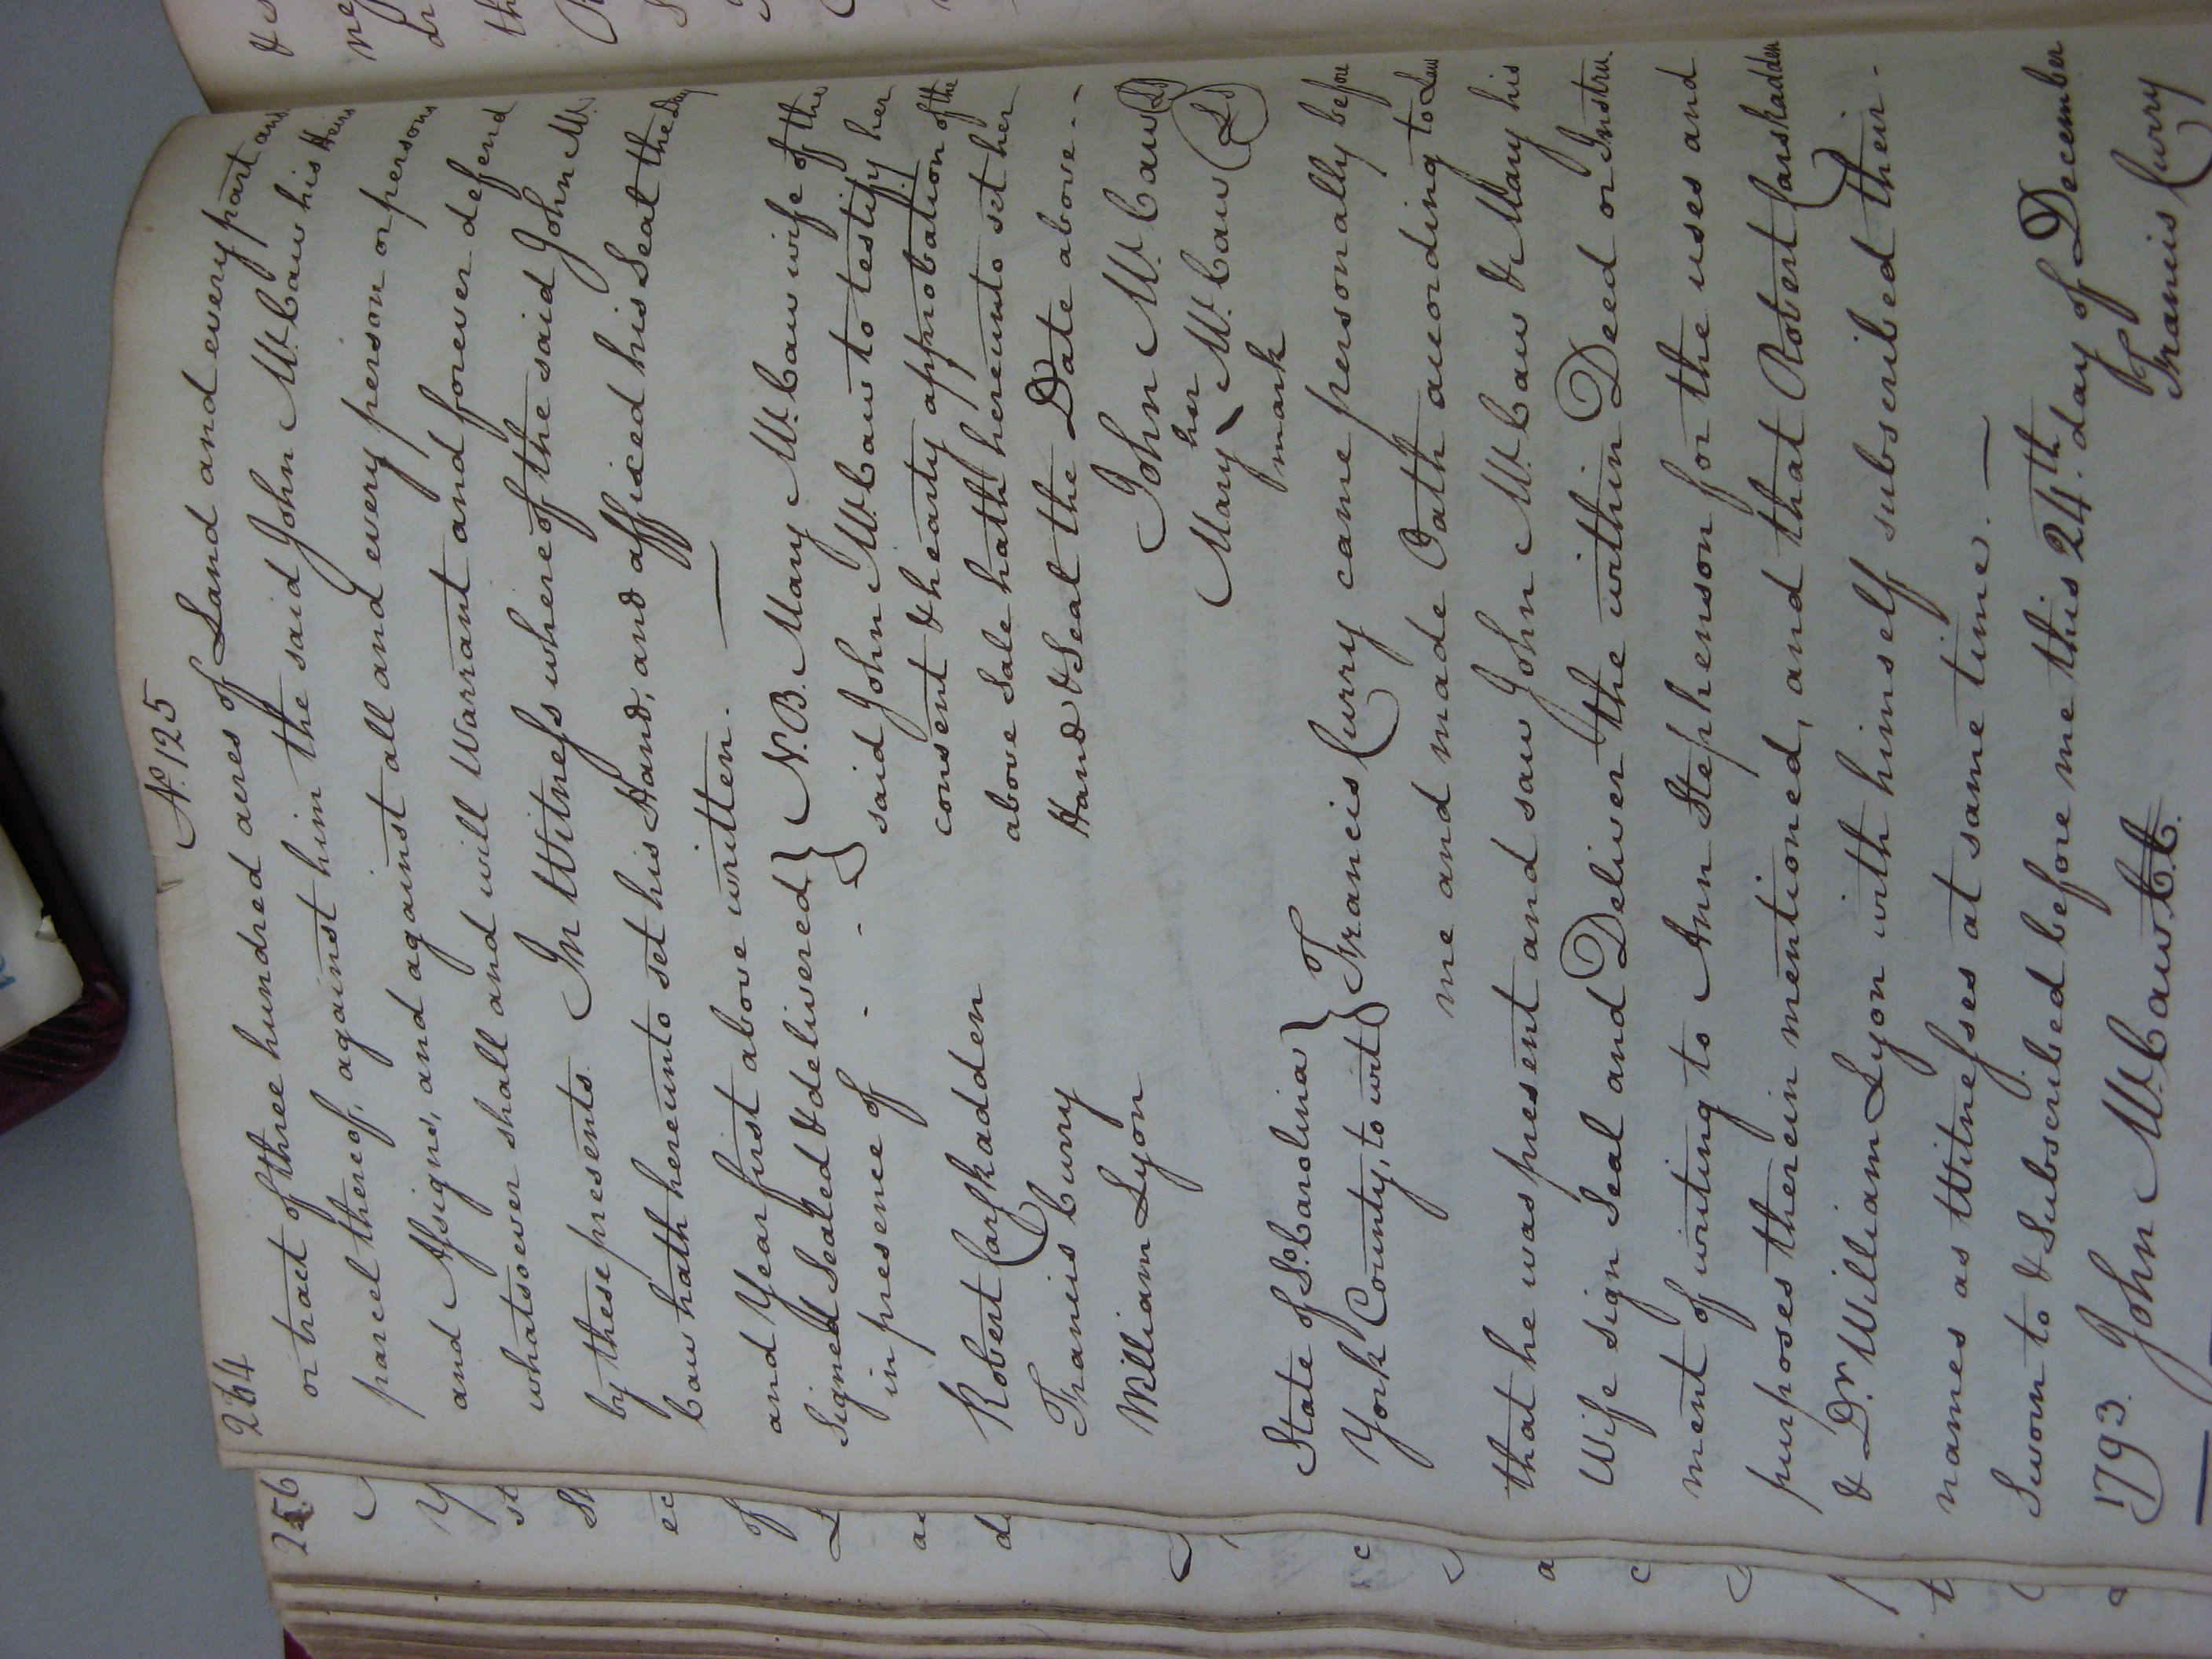 264
No. 125
or tract of three hundred acres of Land and every part and
parcel thereof, against him the said John McCaw his Heirs
and Assigns, and against all and every person or persons
whatsoever shall and will Warrant and forever defend
by these presents. In Witness whereof the said John Mc.
Caw hath hereunto set his Hand, and affixed his Seal the Day
and Year first above written. —
Signed Sealed & delivered
in presence of - -
N.B. Mary McCaw wife of the
said John McCaw to testify her
consent & hearty approbation of the
above Sale hath hereunto set her
Hand & Seal the Date above - -
Robert Carskadden
Francis Curry
William Lyon
John McCaw LS
Mary her McCaw LS
mark
State of So. Carolina
York County, to wit
Francis Curry came personally before
me and made Oath according to Law
that he was present and saw John McCaw & Mary his
Wife sign Seal and Deliver the within Deed or Instru
ment of writing to Ann Stephenson for the uses and
purposes therein mentioned, and that Robert Carskadden
& Dr. William Lyon with himself subscribed their -
names as Witnesses at same time. —
Sworn to & Subscribed before me this 24th. day of December
1793. John McCaw C.C. Francis Curry
256